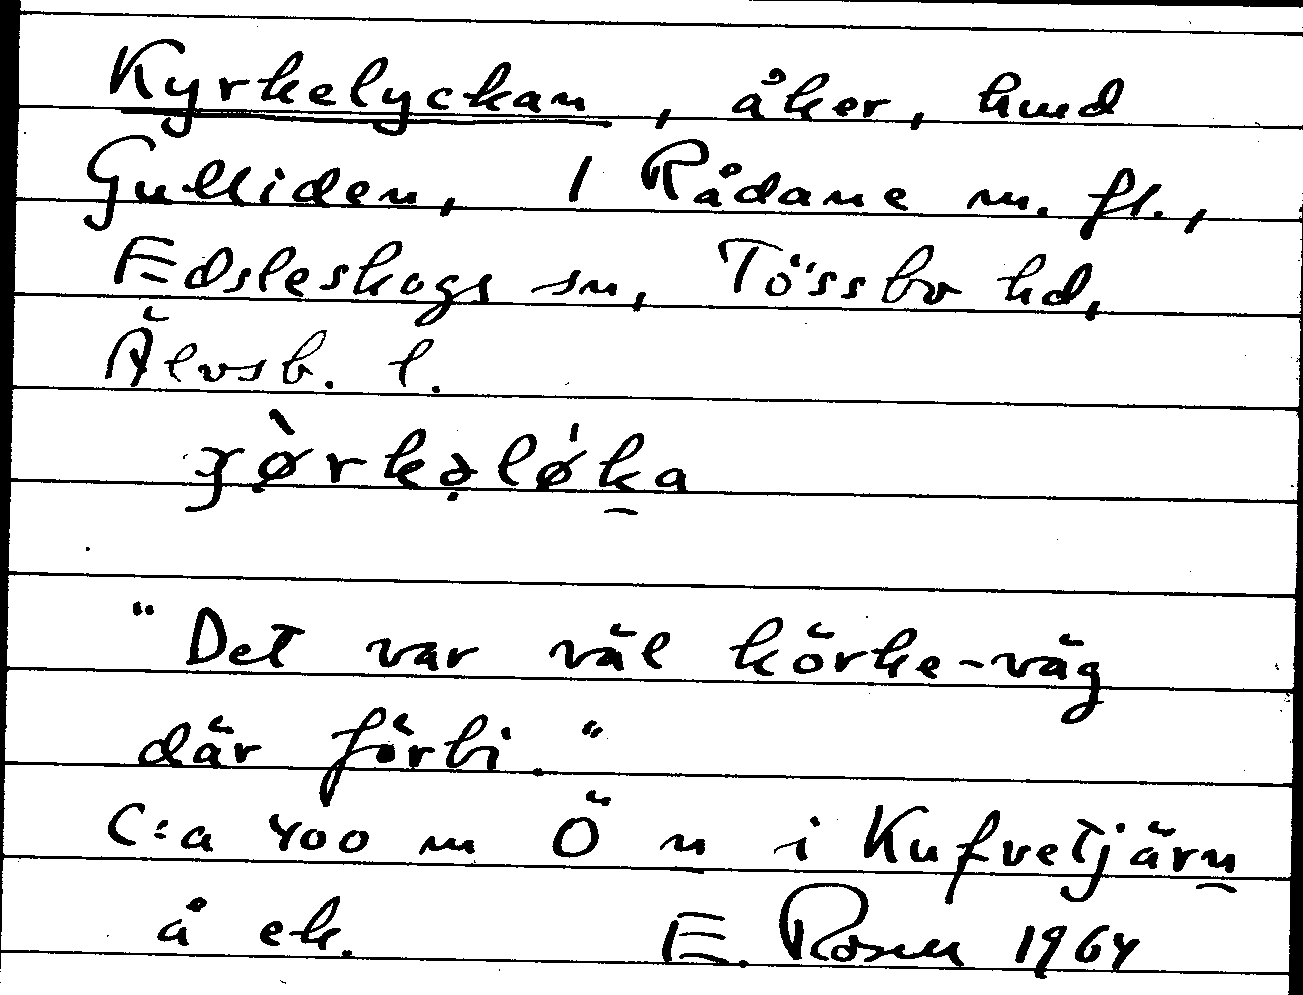 Kyrkelyckan, åker, hmd
Gulliden, 1 Rådane m. fl.,
Edsleskogs sn, Tössbo hd,
Älvsb. l.
ɟø̀rkə̣lǿḵa
"Det var väl körke-väg
där förbi."
C:a 400 m Ö n i Kufvetjärn
å ek. E. Rosen 1964